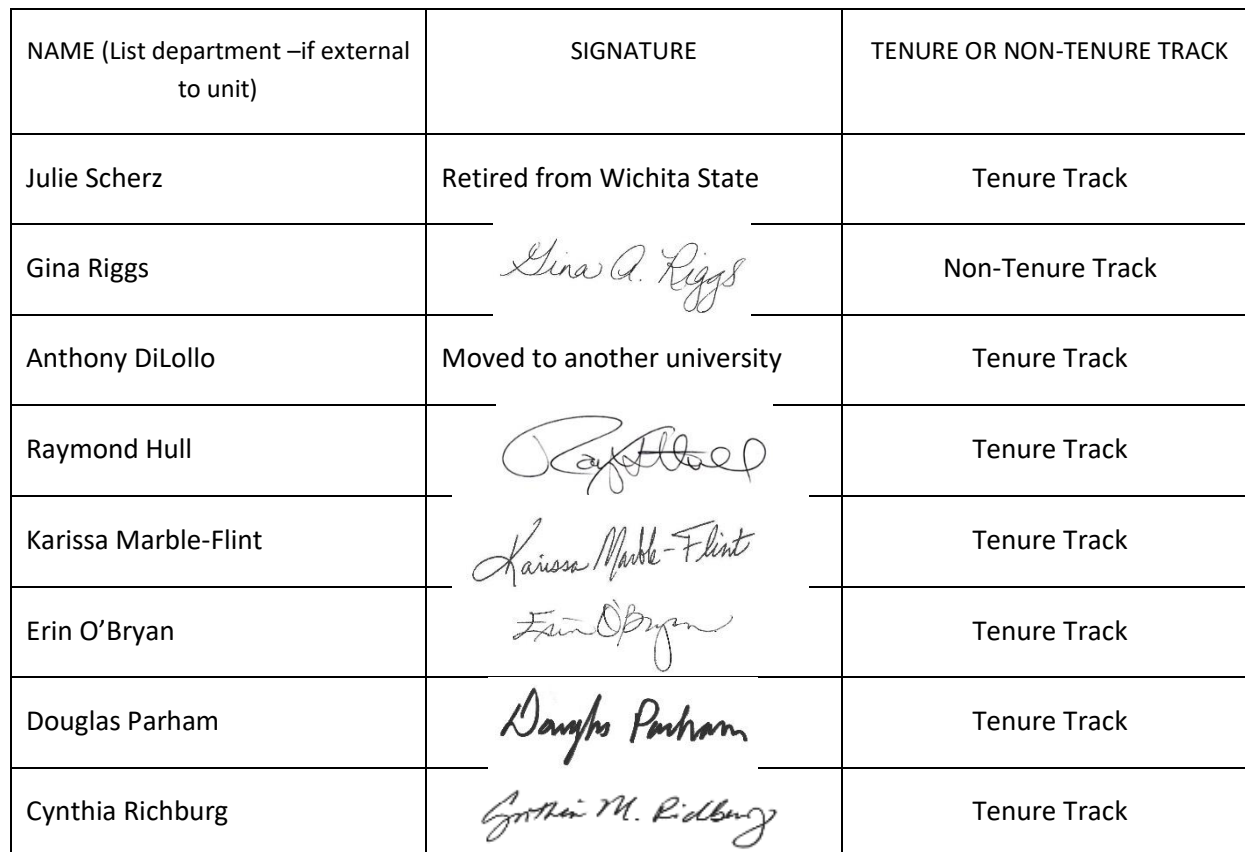 NAME (List department –if external
to unit)
SIGNATURE
TENURE OR NON-TENURE TRACK
Julie Scherz
Retired from Wichita State
Tenure Track
Gina Riggs
Gina A. Riggs
Non-Tenure Track
Anthony DiLollo
Moved to another university
Tenure Track
Raymond Hull
Ray Hull
Tenure Track
Karissa Marble-Flint
Karissa Marble-Flint
Tenure Track
Erin O’Bryan
Erin O'Bryan
Tenure Track
Douglas Parham
Douglas Parham
Tenure Track
Cynthia Richburg
Cynthia M. Richburg
Tenure Track